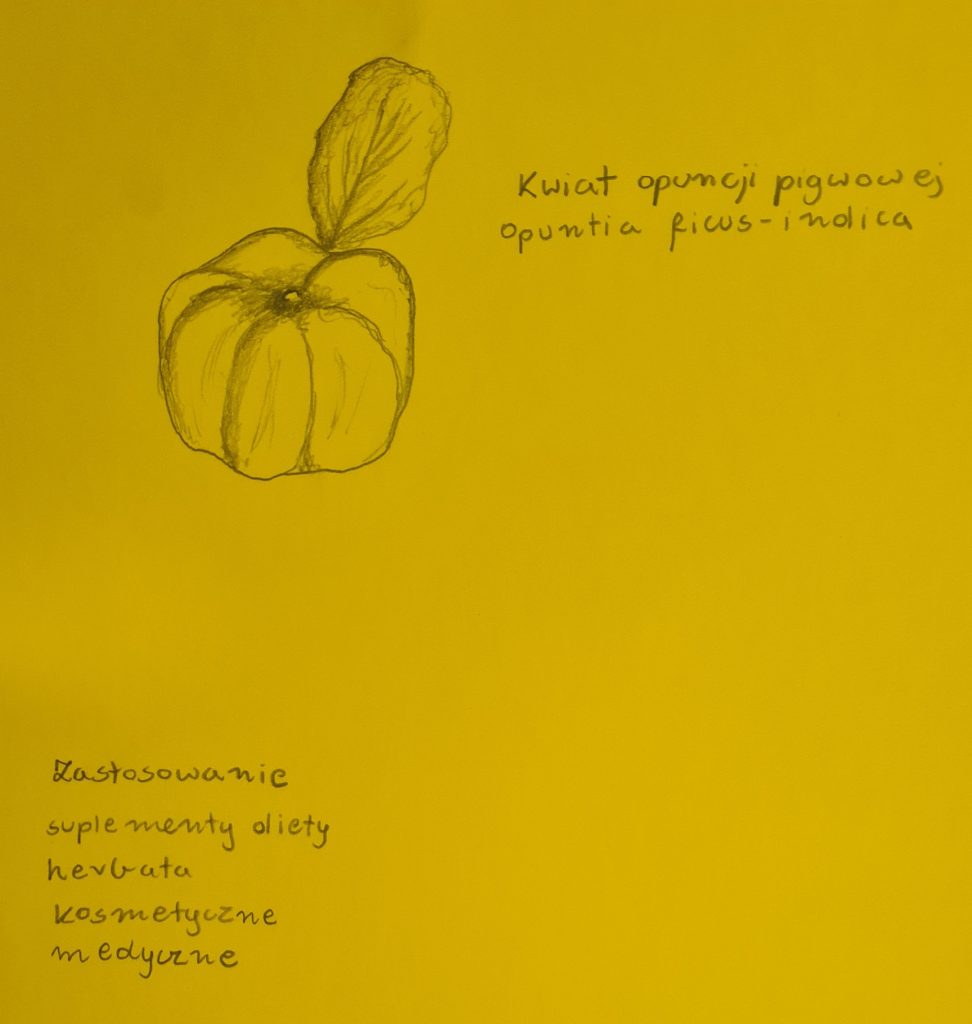 Kwiat opuncji pigwowej
opuntia ficus-indica
Zastosowanie
suplementy diety
herbata
kosmetyczne
medyczne